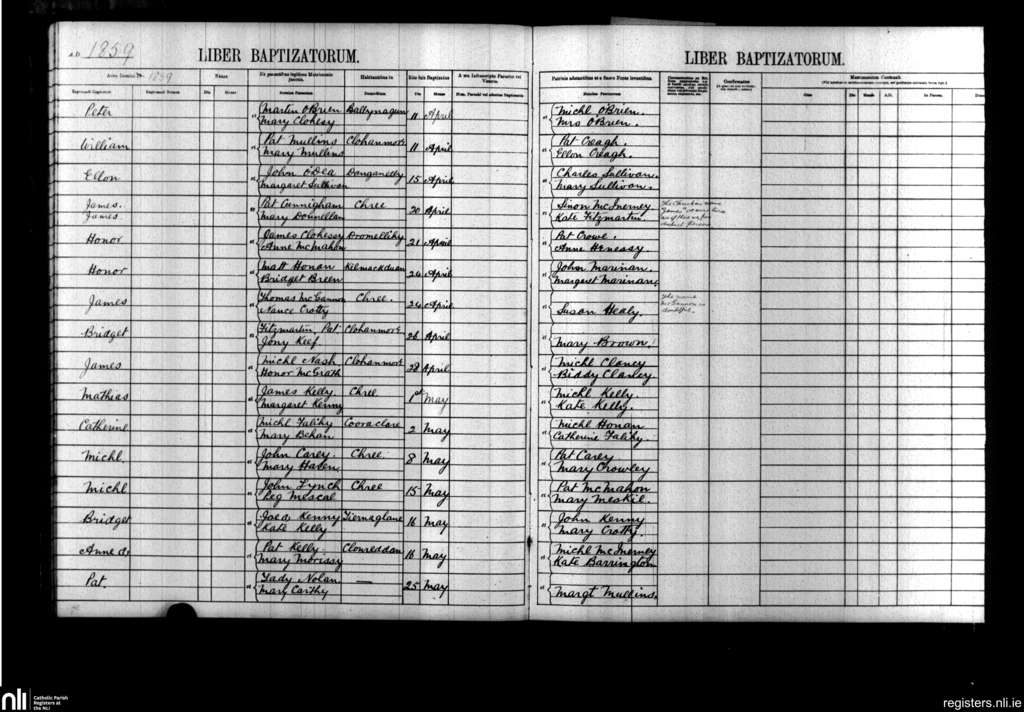 A.D. 1859
LIBER BAPTIZATORUM.
LIBER BAPTIZATORUM.
Anno Domini 1859
Natus
Ex parentibus legitimo Matrimonio junctis.
Habitantibus in
Rite fuit Baptizatus
Die
Mense
Die
Mense
Confirmatus
Matrimonium Contraxit.
Die
Mense
A.D.
Peter
Martin O'Brien
Mary Clohesy
11 April
Michl O'Brien.
Mrs O'Brien.
William
Pat Mullins Clohanmore
Mary Mullins
11 April
Pat Creagh.
Ellon Creagh.
Ellon
John O'Dea
Margaret Sullivan
15 April
Charles Sullivan.
Mary Sullivan.
James.
James
Pat Cunnigham Chree
Mary Donnellan
20 April
Sinon McInerney
Kate Fitzmartin.
Honor
James Clohessy Dromellihy
Anne McMahon
21 April
Pat Crowe.
Anne Henessy.
Honor
Matt Honan Kilmackduan
Bridget Breen
24 April
John Marinan.
Margaret Marinan.
James
Thomas McGannon Chree.
Nance Crotty
24 April
Susan Healy.
the name
McGannon is
doubtful.
Bridget
Fitzmartin, Pat Clohanmore
Jony Keef
26 April
Mary Brown.
James
Michl Nash Clohanmore
Honor McGrath
28 April
Michl Clancy
Biddy Clancy
Mathias
James Kelly Chree
Margaret Kenny
1st May
Michl Kelly
Kate Kelly.
Catherine
Michl Falihy Cooraclare
Mary Behan
2 May
Michl Honan
Catherine Falihy.
Michl.
John Carey Chree
Mary Haven
8 May
Pat Carey
Mary Crowley
Michl
John Lynch Chree
Peg Mescal
15 May
Pat McMahon
Mary Meskil.
Bridget
Kenny Tiernaglane
Kate Kelly
16 May
John Kenny
Mary Crotty.
Anne
Pat Kelly Clonreddan
Mary Morissy
16 May
Michl McInerney
Kate Barrington
Pat.
Nolan —
Mary Carthy
25 May
Margt Mullins.
nli
Catholic Parish
Registers at
the NLI
registers.nli.ie